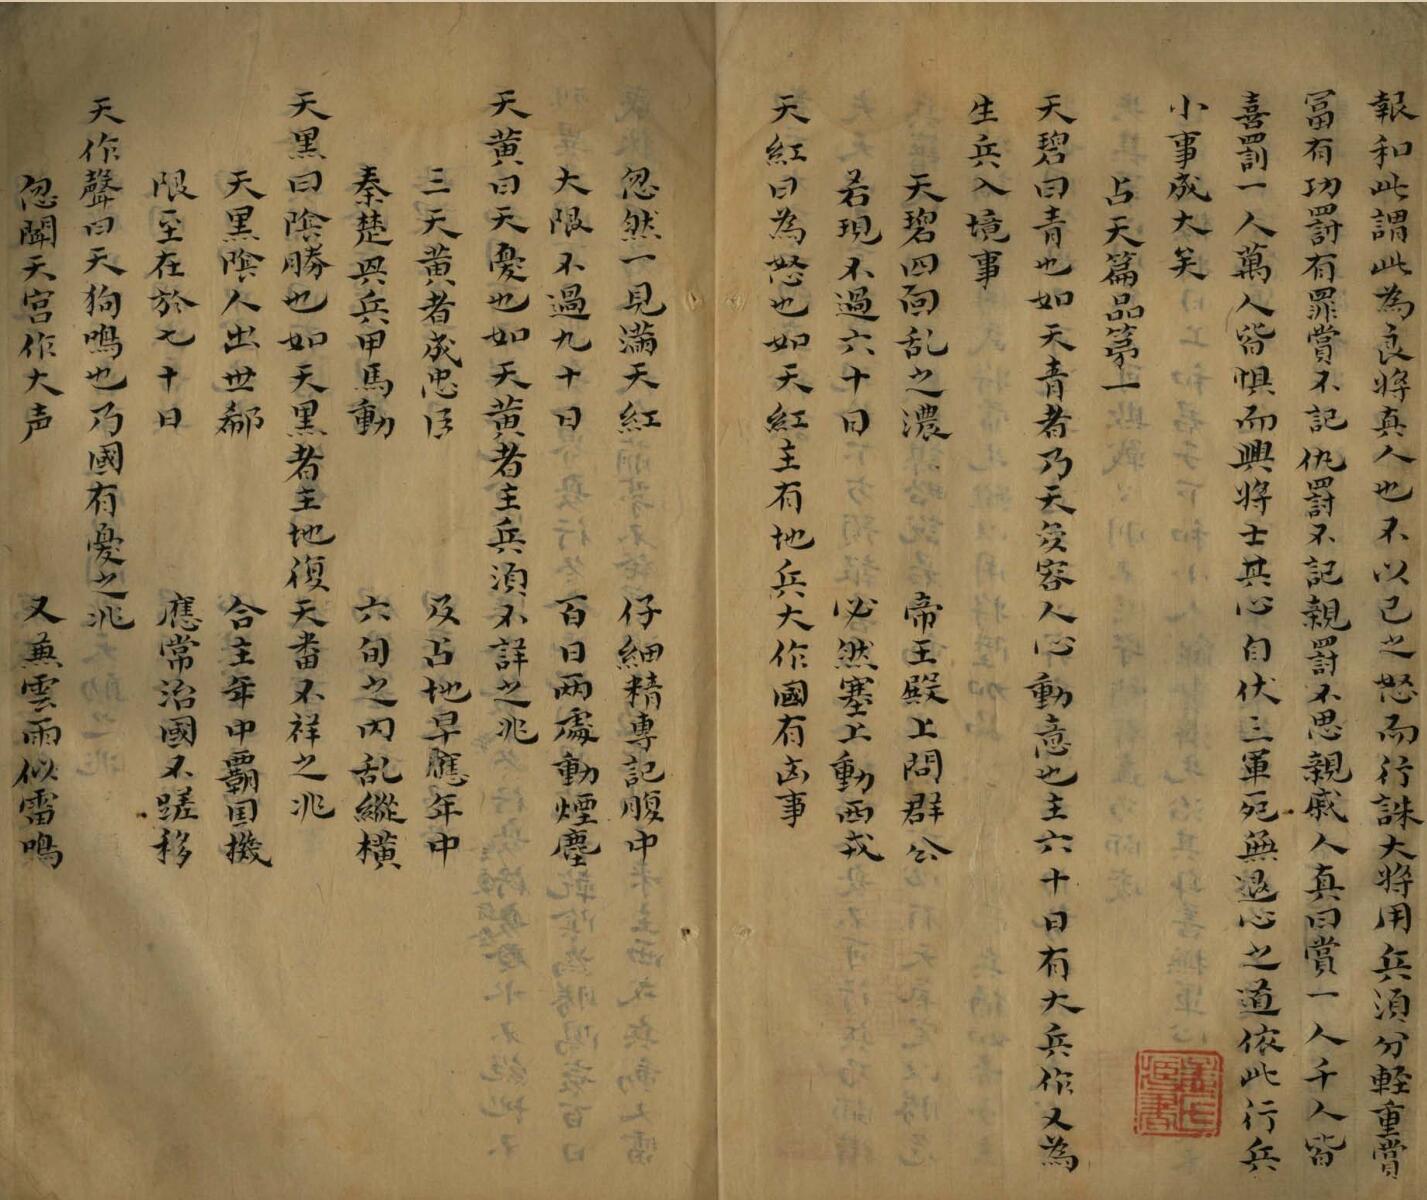 報和此謂此為良將真人也不以已之怒而行誅大將用兵須分輕重賞
冨有功罰有罪賞不記仇罰不記親罰不思親戚人真曰賞一人千人皆
喜罰一人萬人皆惧而興將士其心自伏三軍死無退心之道依此行兵
小事成大矣
占天篇品第一
天碧曰青也如天青者乃天変容人心動意也主六十日有大兵作又為
生兵入境事
天碧四面乱之濃 帝王殿上問群公
若現不過六十日 必然塞上動西戎
天紅曰為怒也如天紅主有地兵大作國有凶事
忽然一見滿天紅 仔細精專記腹中
大限不過九十日 百日兩處動煙塵
天黄曰天憂也如天黄者主兵須不詳之兆
三天黄者成忠臣 及占地早應年中
秦楚興兵甲馬動 六旬之内乱縱橫
天黒曰陰勝也如天黒者主地復天畨不祥之兆
天黒陰人出世鄰 合主年中覇国機
限至在於七十日 應常治國不蹉移
天作聲曰天狗鳴也乃國有憂之兆
忽聞天宫作大声 又兼雲雨似雷鳴